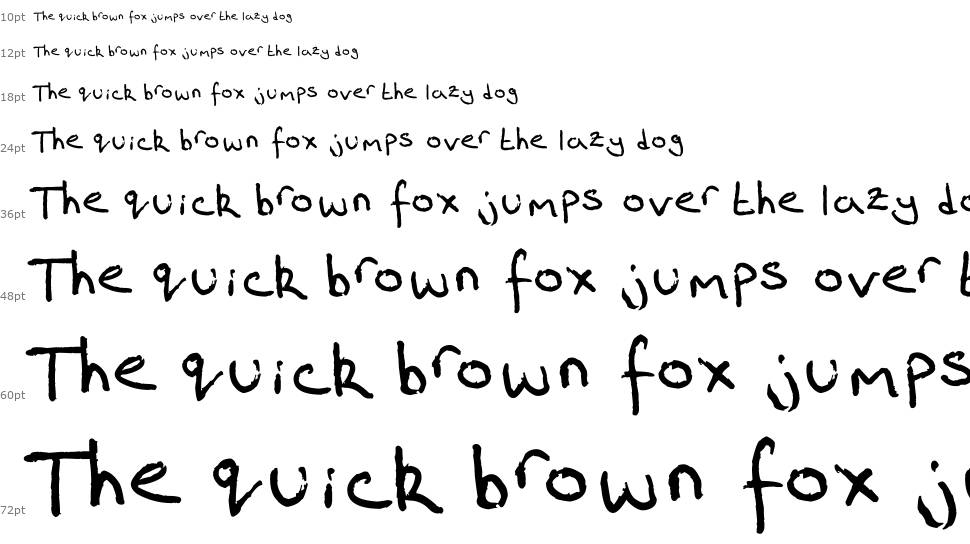 10pt The quick brown fox jumps over the lazy dog
12pt The quick brown fox jumps over the lazy dog
18pt The quick brown fox jumps over the lazy dog
24pt The quick brown fox jumps over the lazy dog
36pt The quick brown fox jumps over the lazy do
48pt The quick brown fox jumps over t
60pt The quick brown fox jumps
72pt The quick brown fox ju